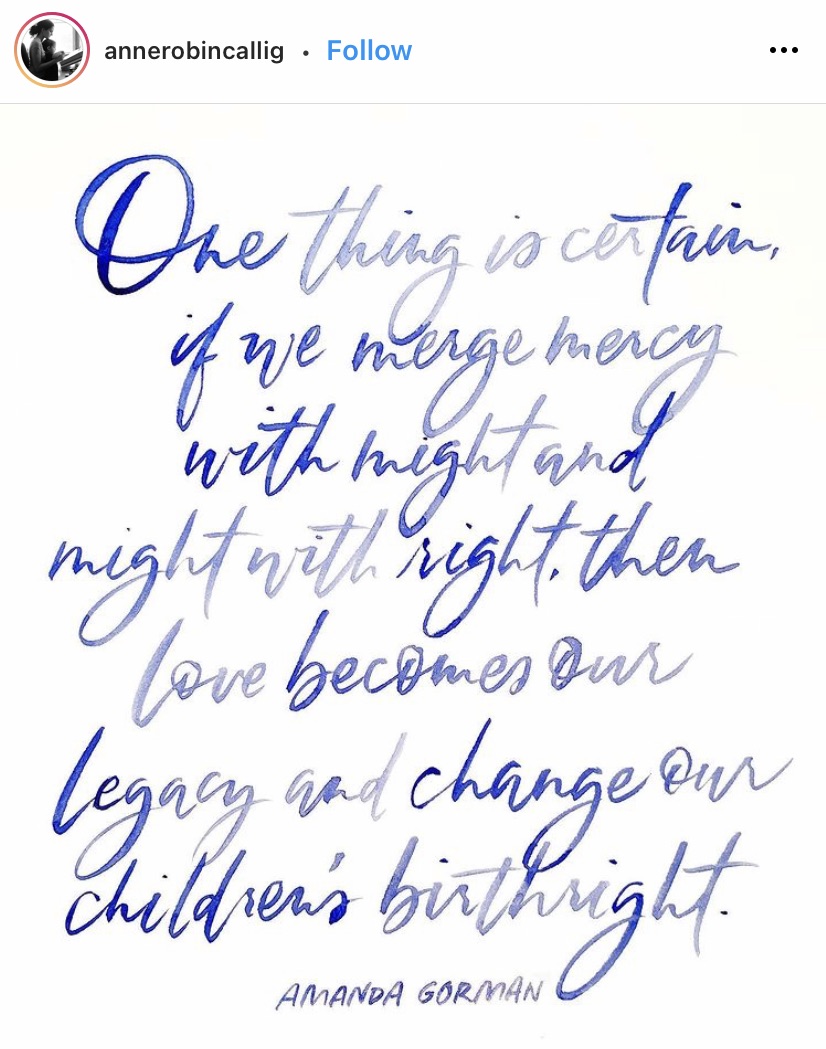 annerobincallig • Follow
One thing is certain,
if we merge mercy
with might and
might with right, then
love becomes our
legacy and change our
children's birthright.
AMANDA GORMAN